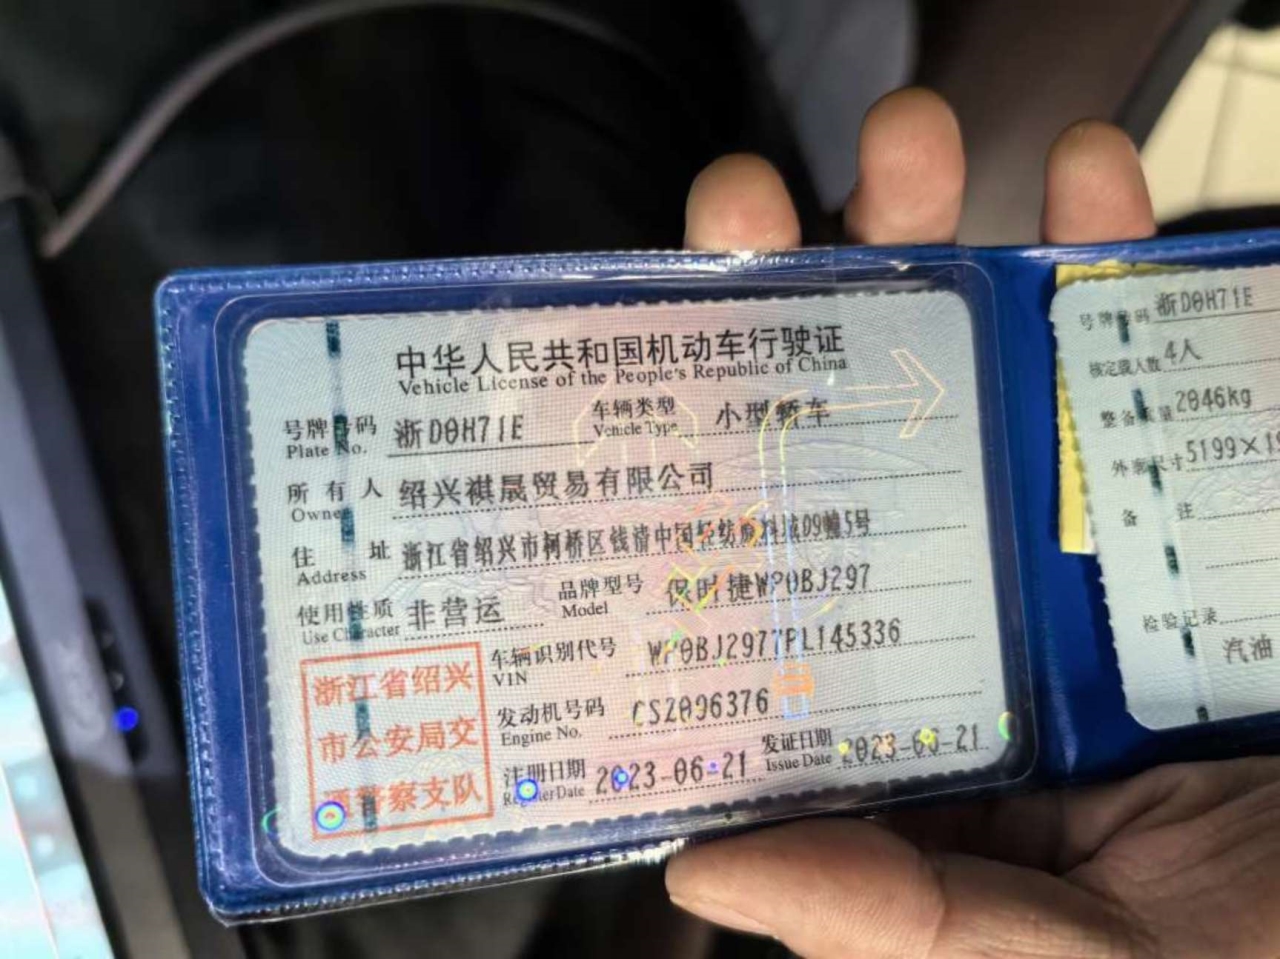 中华人民共和国机动车行驶证
Vehicle License of the People's Republic of China
号牌号码 浙D0H71E 车辆类型 小型轿车
Plate No. Vehicle Type
所有人 绍兴祺晟贸易有限公司
Owner
住址 浙江省绍兴市柯桥区钱清中国轻纺原料城09幢5号
Address
使用性质 非营运 品牌型号 保时捷WP0BJ297
Use Character Model
车辆识别代号 WP0BJ2977PL145336
VIN
发动机号码 CSZ096376
Engine No.
注册日期 2023-06-21 发证日期 2023-06-21
Register Date Issue Date
浙江省绍兴
市公安局交
通警察支队
号牌号码 浙D0H71E
核定载人数 4人
整备质量 2046kg
外廓尺寸 5199×19
备注
检验记录
汽油